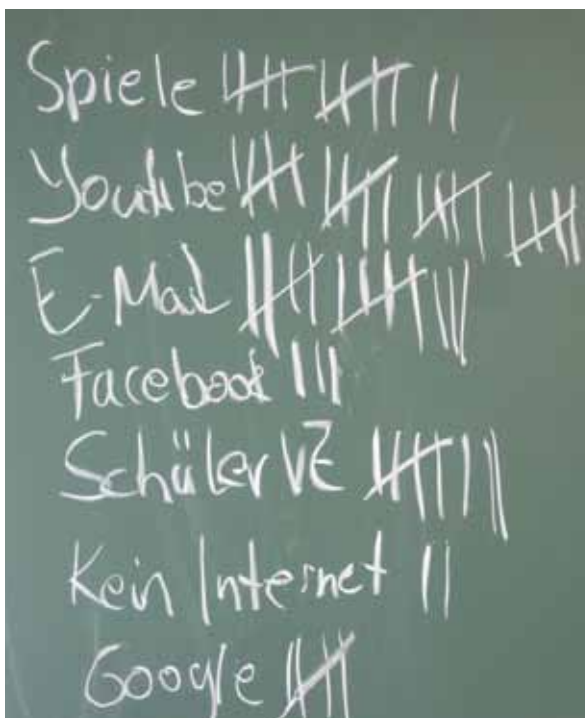 Spiele 𝍸 𝍸 ||
Youtube 𝍸 𝍸 𝍸 𝍸
E-Mail 𝍸 𝍸 |||
Facebook |||
SchülerVZ 𝍸 ||
Kein Internet ||
Google 𝍸